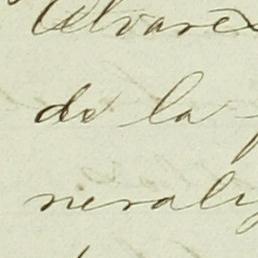 Alvarez
de la
neraliz